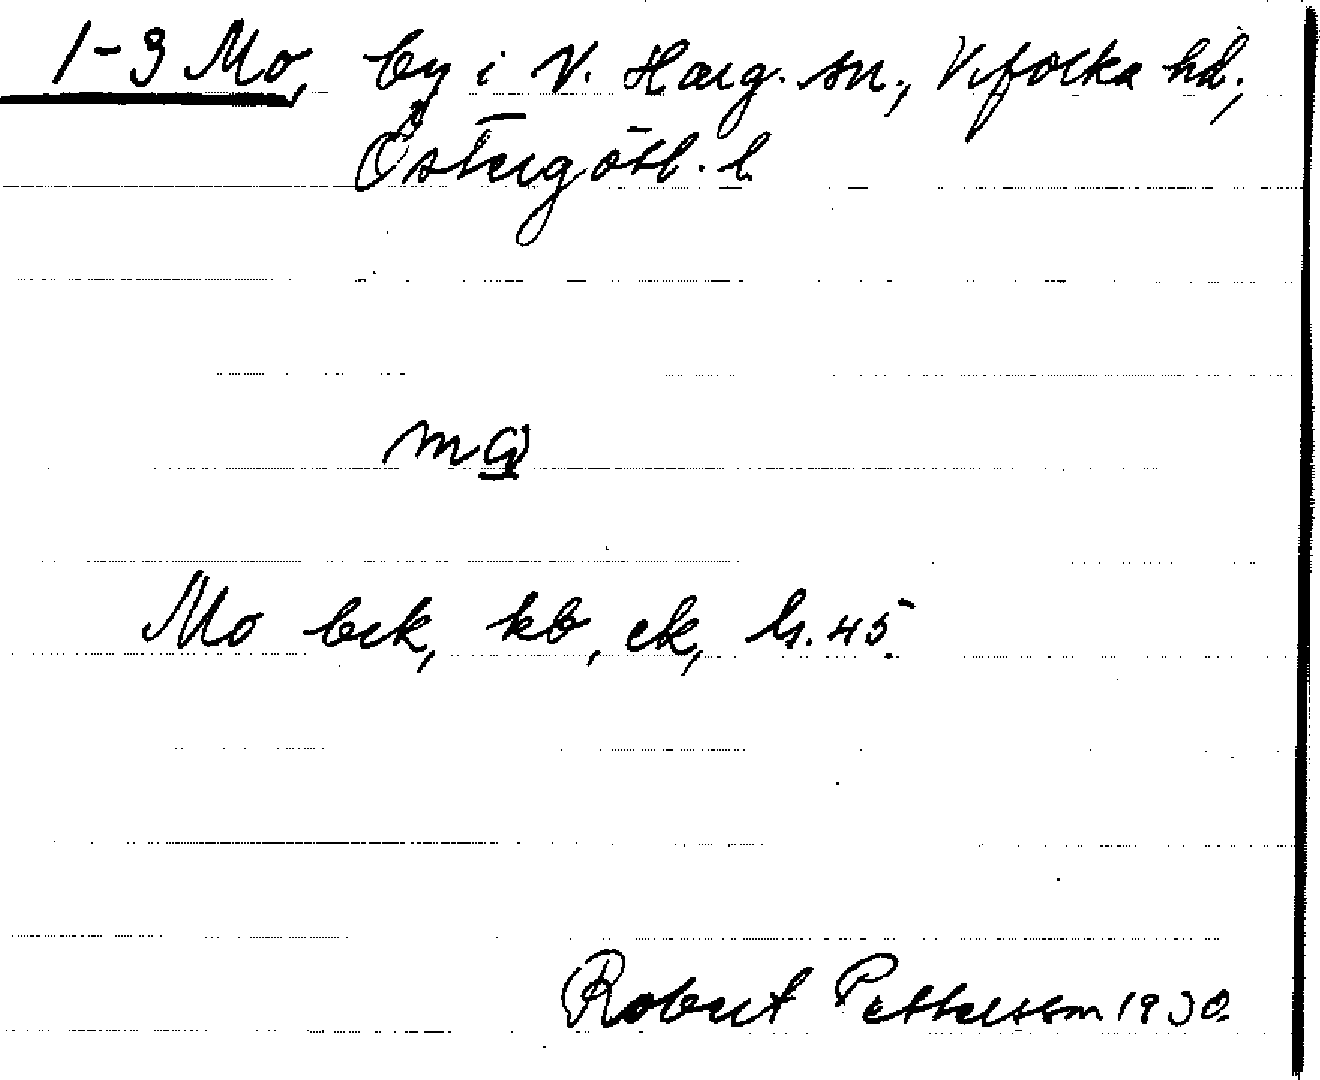 1-3 Mo, by i V. Harg. sn., Vifolka hd.,
Östergötl. l.
Mo bek, kb, ek, ls. 45.
Robert Pettersson 1930